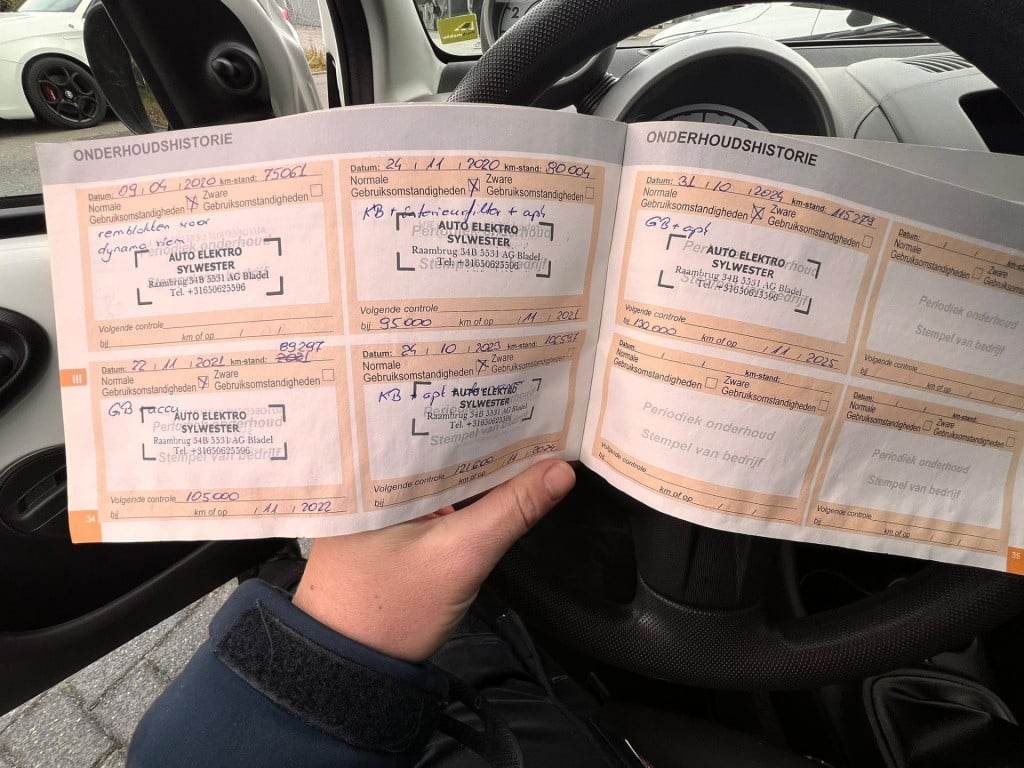 ONDERHOUDSHISTORIE
Datum: 09 / 04 / 2020 km-stand: 75061
Normale Gebruiksomstandigheden X Zware Gebruiksomstandigheden
remblokken voor
dynamo riem
Periodiek onderhoud
AUTO ELEKTRO
SYLWESTER
Raambrug 34B 5531 AG Bladel
Tel. +31650625596
Volgende controle
bij km of op / /
Datum: 24 / 11 / 2020 km-stand: 80004
Normale Gebruiksomstandigheden X Zware Gebruiksomstandigheden
KB + interieurfilter + apk
AUTO ELEKTRO
SYLWESTER
Raambrug 34B 5531 AG Bladel
Tel. +31650625596
Stempel van bedrijf
Volgende controle
bij 95000 km of op / 11 / 2021
III
Datum: 22 / 11 / 2021 km-stand: 89297
Normale Gebruiksomstandigheden X Zware Gebruiksomstandigheden
GB + accu
AUTO ELEKTRO
SYLWESTER
Raambrug 34B 5531 AG Bladel
Tel. +31650625596
Stempel van bedrijf
Volgende controle 105000
bij km of op / 11 / 2022
Datum: 24 / 10 / 2023 km-stand:
Normale Gebruiksomstandigheden X Zware Gebruiksomstandigheden
KB + apk
AUTO ELEKTRO
SYLWESTER
Raambrug 34B 5531 AG Bladel
Tel. +31650625596
Stempel van bedrijf
Volgende controle
bij 121600 km of op / 11 / 2024
34
ONDERHOUDSHISTORIE
Datum: 31 / 10 / 2024 km-stand: 115279
Normale Gebruiksomstandigheden X Zware Gebruiksomstandigheden
GB + apk
Periodiek onderhoud
AUTO ELEKTRO
SYLWESTER
Raambrug 34B 5531 AG Bladel
Tel. +31650625596
Stempel van bedrijf
Volgende controle
bij 130000 km of op / 11 / 2025
Datum: / / km-stand:
Normale Gebruiksomstandigheden Zware Gebruiksomstandigheden
Periodiek onderhoud
Stempel van bedrijf
Volgende controle
bij km of op / /
Datum: / / km-stand:
Normale Gebruiksomstandigheden Zware Gebruiksomstandigheden
Periodiek onderhoud
Stempel van bedrijf
Volgende controle
bij km of op / /
Datum: / / km-stand:
Normale Gebruiksomstandigheden Zware Gebruiksomstandigheden
Periodiek onderhoud
Stempel van bedrijf
Volgende controle
bij km of op / /
35